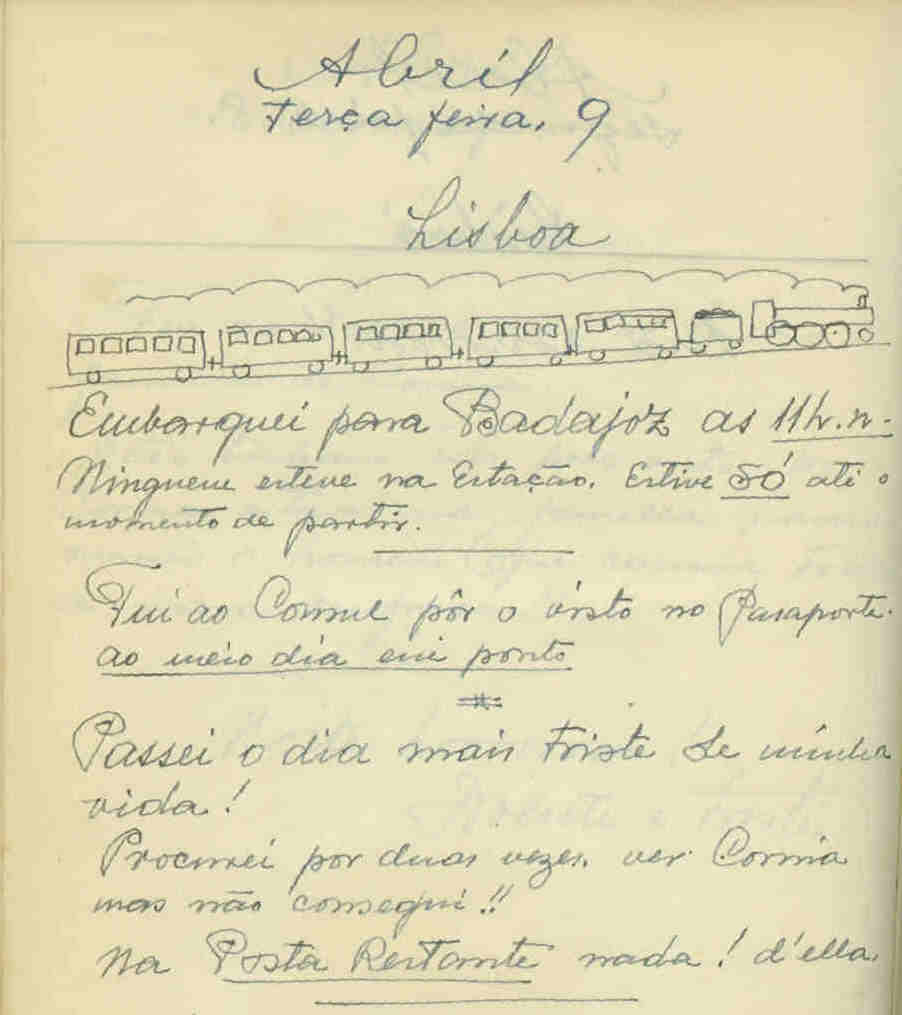 Abril
Terça feira, 9
Lisboa
Embarquei para Badajoz as 11h.n.
Ninguem esteve na Estação. Estive SÓ até o
momento de partir.
Fui ao Consul pôr o visto no Pasaporte.
ao meio dia em ponto
Passei o dia mais triste de minha
vida!
Procurei por duas vezes. ver
mas não consegui!!
Na Posta Restante nada! d'ella.